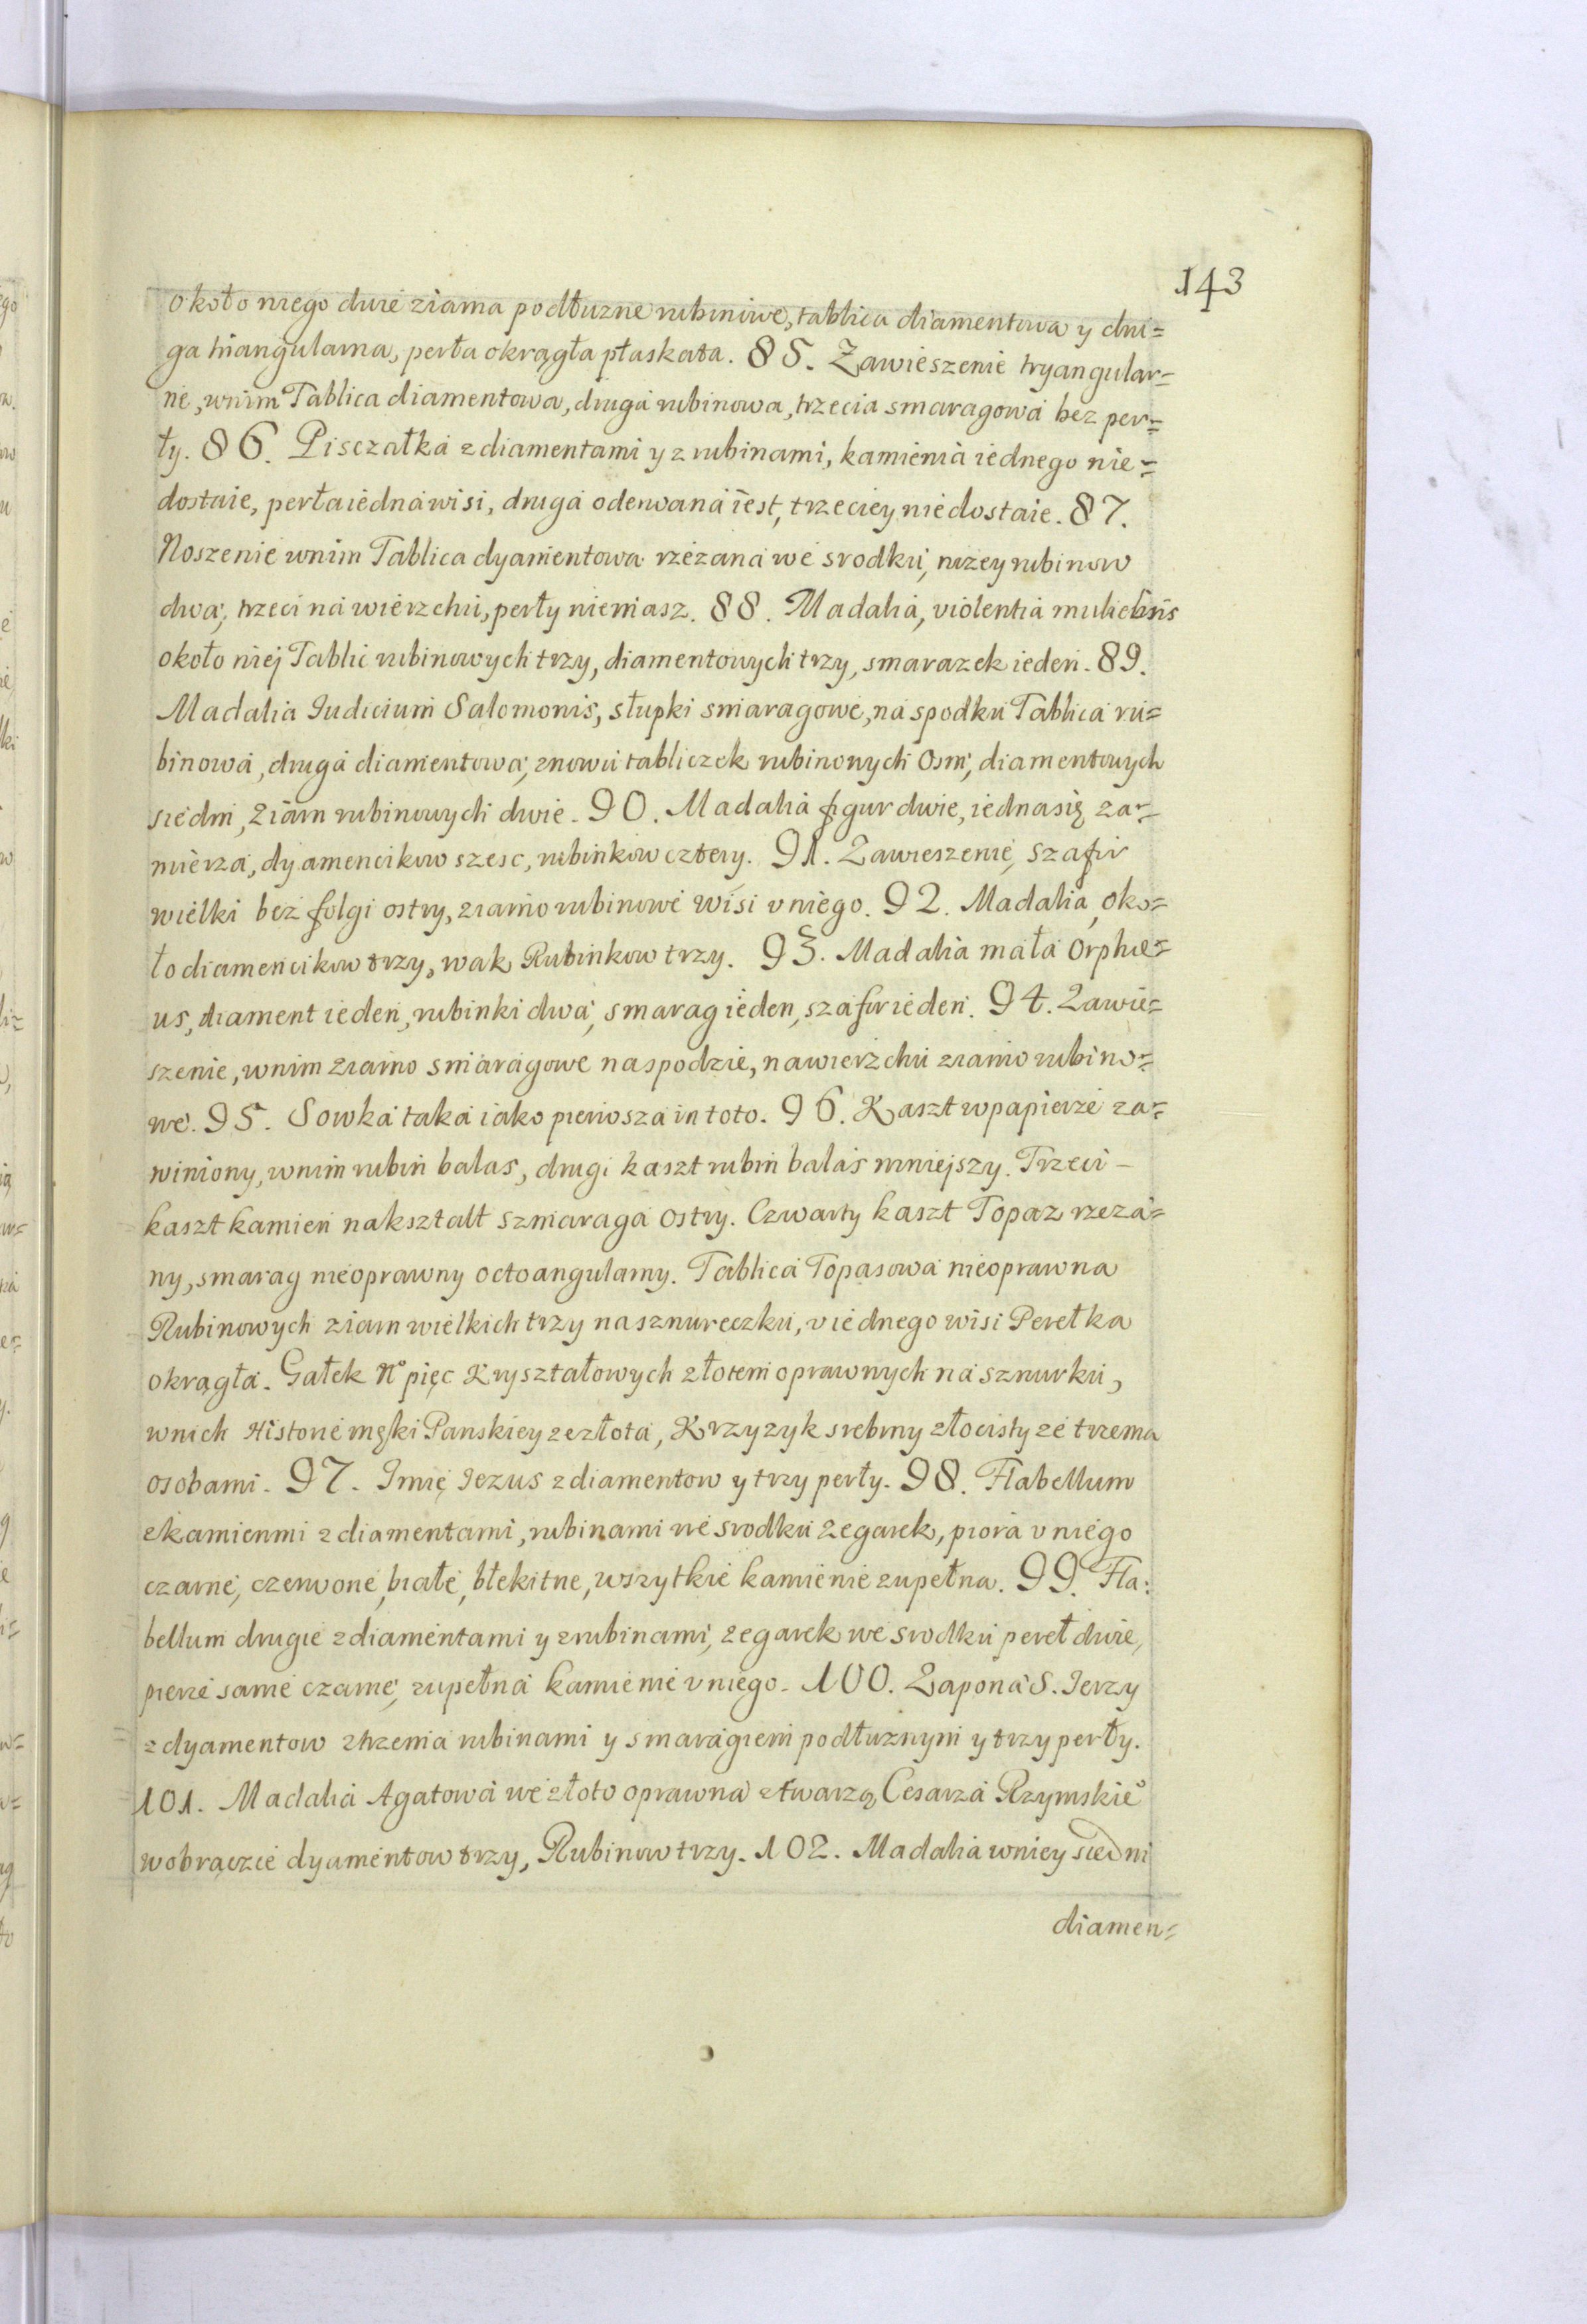 143
około niego dwie ziarna podłuzne rubinowe, tablica diamentowa y dru=
ga triangularna, perła okrągła płaskata. 85. Zawieszenie tryangular=
ne, wnim Tablica diamentowa, druga rubinowa, trzecia smaragowa bez per=
ły. 86. Pisczałka z diamentami y z rubinami, kamienia iednego nie=
dostaie, perła iedna wisi, druga oderwana iest, trzeciey niedostaie. 87.
Noszenie wnim Tablica dyamentowa rzezana we srodku, nizey rubinow
dwa, trzeci na wierzchu, perły niemasz. 88. Madalia, violentia muliebris
około niej Tablic rubinowych trzy, diamentowych trzy, smarazek ieden. 89.
Madalia Iudicium Salomonis, słupki smaragowe, na spodku Tablica ru=
binowa, druga diamentowa, znowu tabliczek rubinowych Osm, diamentowych
siedm, ziarn rubinowych dwie. 90. Madalia figur dwie, iedna się za=
mierza, dyamencikow szesc, rubinkow cztery. 91. Zawieszenie, szafir
wielki bez folgi ostry, ziarno rubinowe wisi v niego. 92. Madalia, oko=
ło diamencikow trzy, wak Rubinkow trzy. 93. Madalia mała Orphe=
us, diament ieden, rubinki dwa, smarag ieden, szafir ieden. 94. Zawie=
szenie, wnim ziarno smaragowe na spodzie, na wierzchu ziarno rubino=
we. 95. Sowka taka iako pierwsza in toto. 96. Kaszt w papierze za=
winiony, wnim rubin balas, drugi kaszt rubin balas mniejszy. Trzeci –
kaszt kamien nakształt szmaraga ostry. Czwarty kaszt Topaz rzeza=
ny, smarag nieoprawny octoangularny. Tablica Topasowa nieoprawna
Rubinowych ziarn wielkich trzy na sznureczku, v iednego wisi Perełka
okrągła. Gałek No pięc Kryształowych złotem oprawnych na sznurku,
wnich Historie męki Panskiey ze złota, Krzyzyk srebrny złocisty ze trzema
osobami. 97. Imię Iezus z diamentow y trzy perły. 98. Flabellum
z kamienmi z diamentami, rubinami we srodku zegarek, piora v niego
czarne, czerwone, białe, błekitne, wszytkie kamienie zupełna. 99. Fla:
bellum drugie z diamentami y z rubinami, zegarek we srodku pereł dwie,
pierze same czarne, zupełna kamienie v niego. 100. Zapona S. Ierzy
z dyamentow z trzema rubinami y smaragiem podłuznym y trzy perły.
101. Madalia Agatowa we złoto oprawna z twarzą Cesarza Rzymskieo
wobrączie dyamentow trzy, Rubinow trzy. 102. Madalia wniey siedm
diamen=